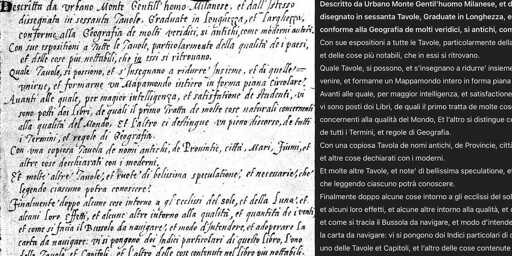 Descritto da Urbano Monte Gentil'homo Milanese, et dall'istesso
disegnato in sessanta Tavole, Graduate in longhezza, et larghezza,
conforme alla Geografia de molti veridici, si antichi, come moderni autori.
Con sue espositioni a tutte le Tavole, particolarmente della qualità de i paesi,
et delle cose più nottabili, che in essi si ritrovano.
Quale Tavole, si possono, et s'insegnano a ridurre insieme, et di quelle
venire, et formarne un Mappamondo intiero in forma piana Circolare.
Avanti alle quale, per magior intelligenza, et satisfatione de studenti, vi
sono posti doi Libri, de quali il primo tratta de molte cose naturali concernenti
alla qualità del Mondo, Et l'altro si distingue un pieno discorso, de tutti
i Termini, et regole di Geografia.
Con una copiosa Tavola de nomi antichi, de Provintie, città, Mari, fiumi, et
altre cose dechiarati con i moderni.
Et molte altre Tavole, et note di bellissima speculatione, et necessarie, che
legendo ciascuno potrà conoscere.
Finalmente doppo alcune cose intorno a gli ecclissi del sole, et della Luna, et
alcuni loro effetti, et alcune altre intorno alla qualità, et quantità de i venti
et come si facia il Bussola da navigare, et modo d'intendere, et adoperare la
carta da navigare: vi si pongono doi Indici particolari di questo Libro, l'uno
delle Tavole, et Capitoli, et l'altro delle cose contenute nel libro più nottabili.
Descritto da Urbano Monte Gentil'huomo Milanese, et d
disegnato in sessanta Tavole, Graduate in Longhezza, e
conforme alla Geografia di molti veridici, si antichi, com
Con sue espositioni a tutte le Tavole, particolarmente della
et delle cose più notabili, che in essi si ritrovano.
Quale Tavole, si possono, et s'insegnano a ridurre insieme
venire, et formarne un Mappamondo intero in forma piana
Avanti alle quale, per maggior intelligenza, et satisfatione
vi sono posti doi Libri, de quali il primo tratta de molte cos
concernenti alla qualità del Mondo, Et l'altro si distingue c
de tutti i Termini, et regole di Geografia.
Con una copiosa Tavola de nomi antichi, de Provincie, citt
et altre cose dechiarati con i moderni.
Et molte altre Tavole, et note' di bellissima speculatione, et
che leggendo ciascuno potrà conoscere.
Finalmente doppo alcune cose intorno a gli ecclissi del sol
et alcuni loro effetti, et alcune altre intorno alla qualità, et
et come si tracia il Bussola da navigare, et modo d'intende
la carta da navigare: vi si pongono doi Indici particolari di
uno delle Tavole et Capitoli, et l'altro delle cose contenute